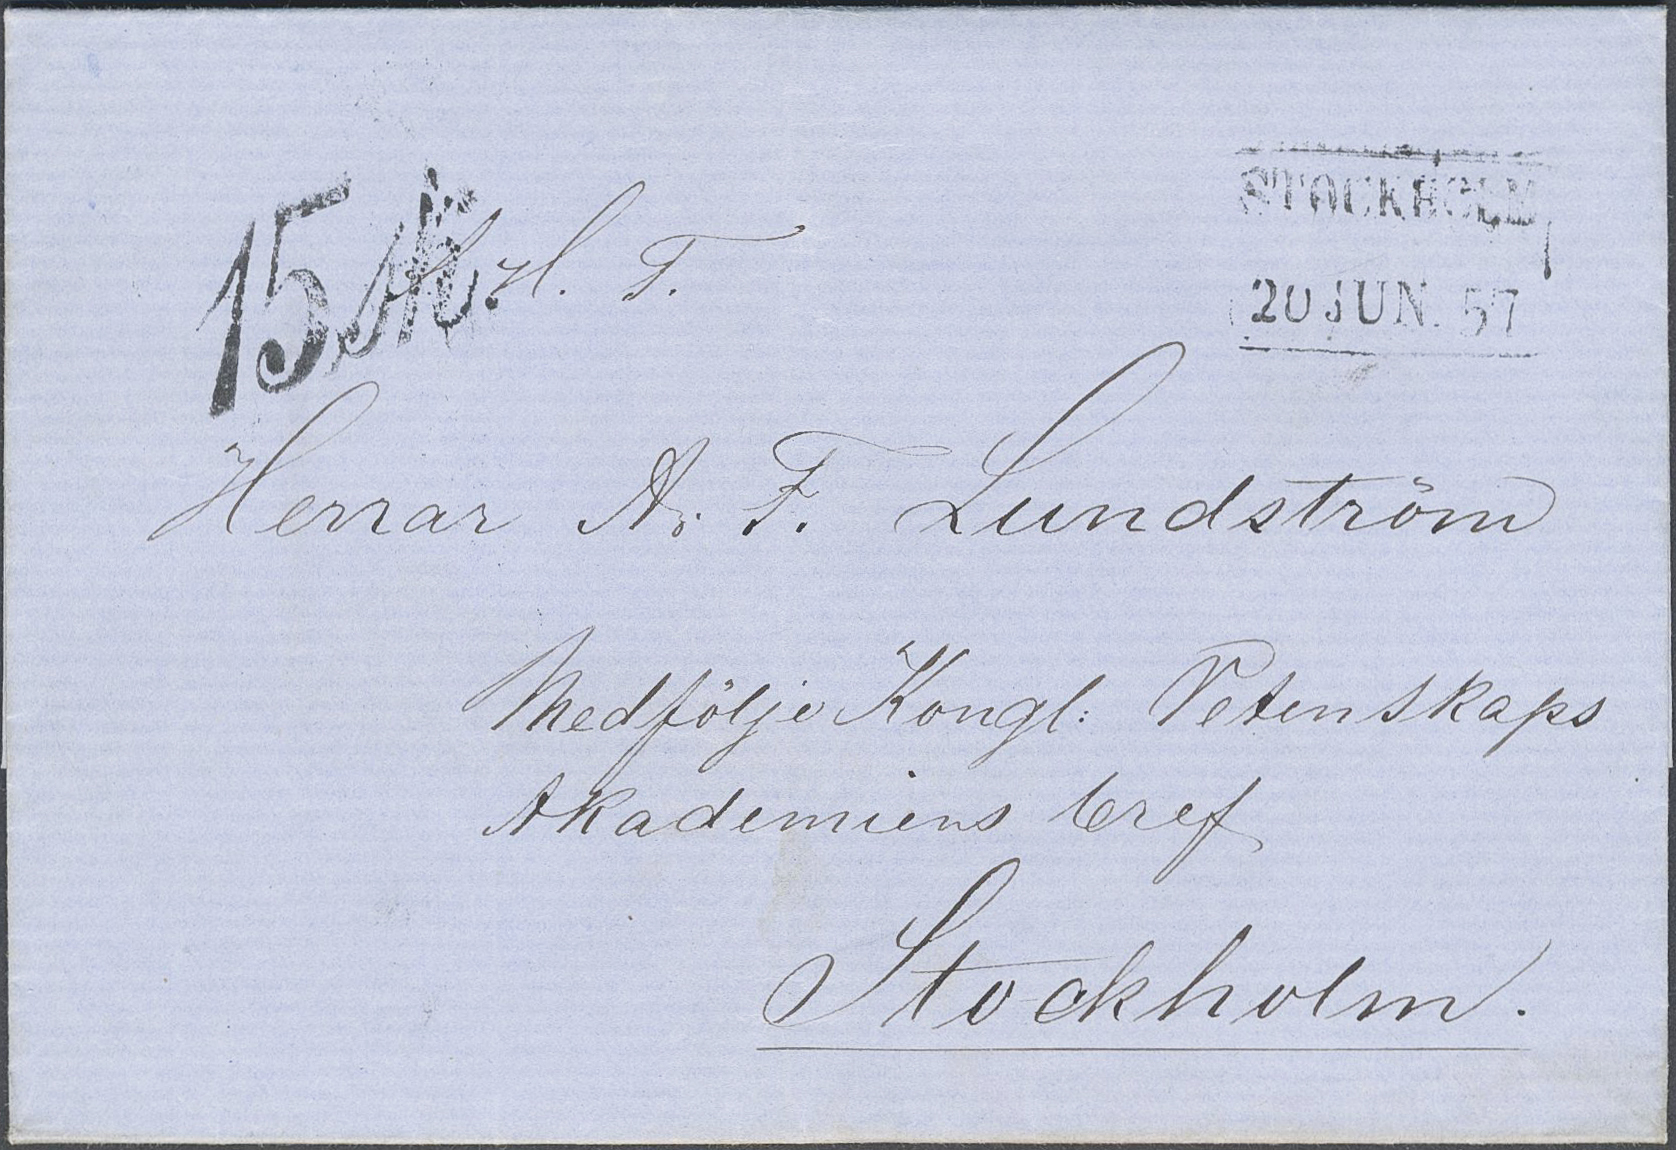 15 sk.
H. T.
STOCKHOLM
20 JUN. 57
Herrar A. F. Lundström
Medfölje Kongl: Vetenskaps
Akademiens bref
Stockholm.